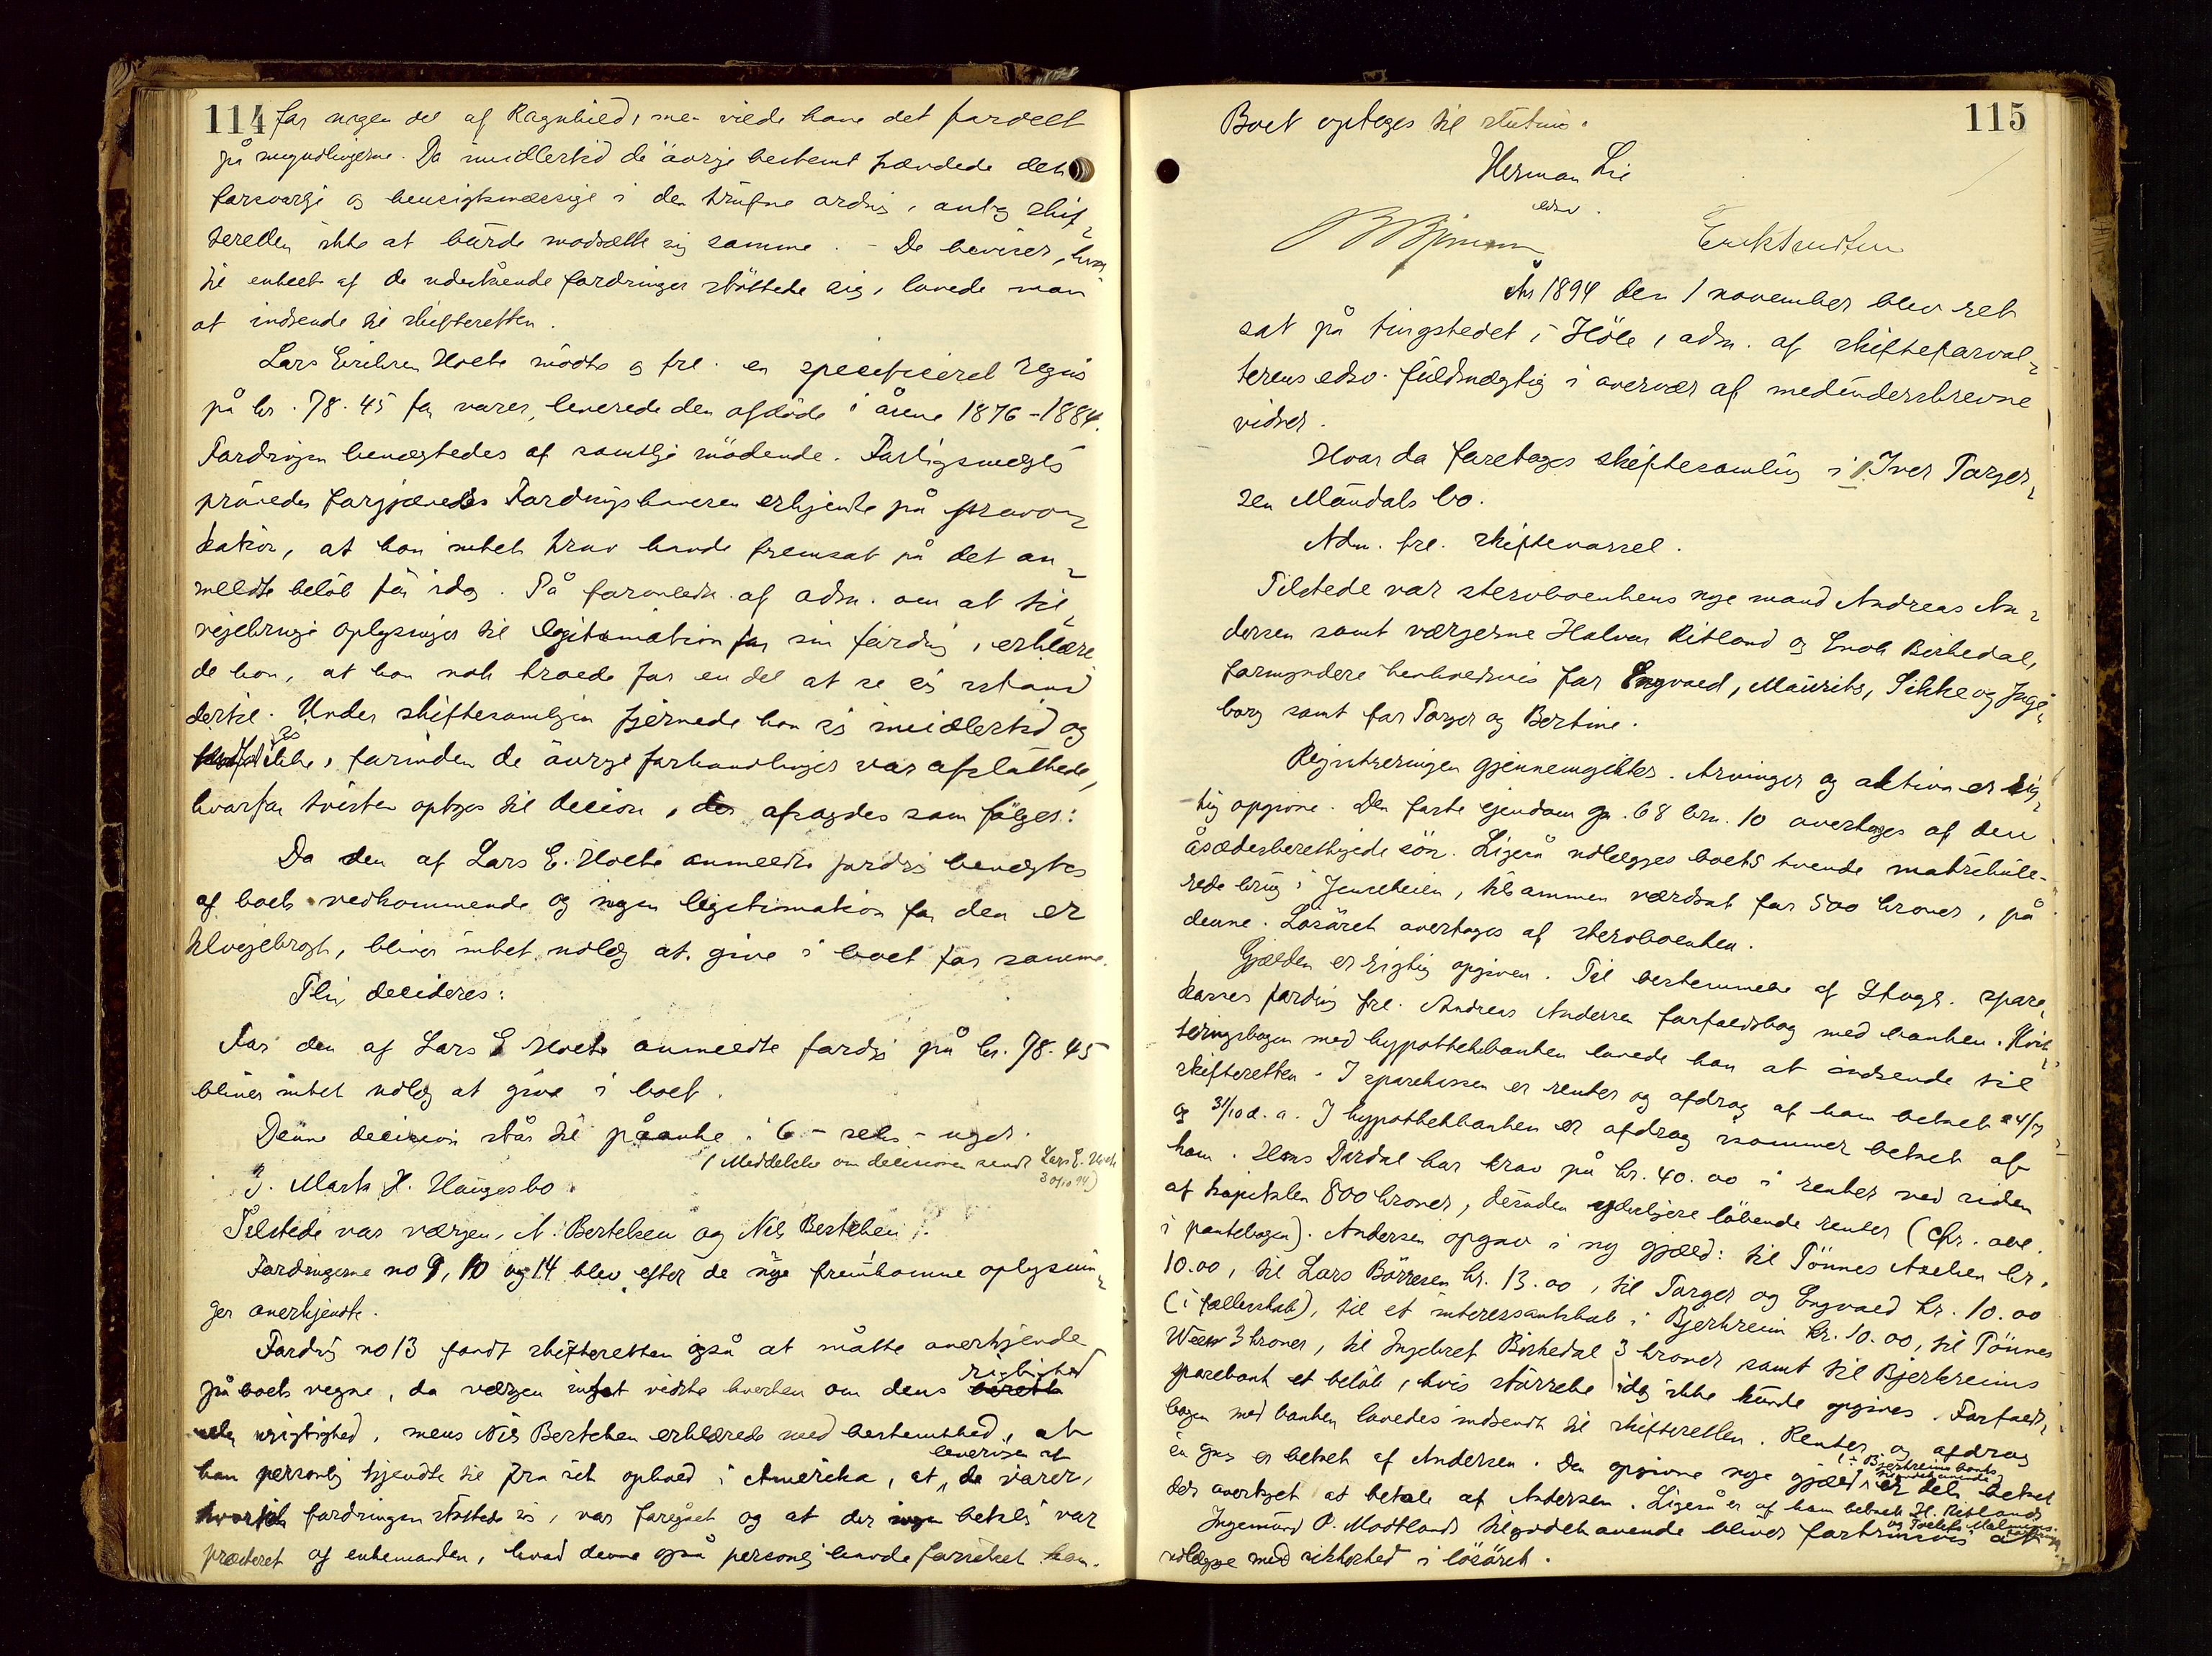 114
for nogen del af Ragnhild, men vilde have det fordelt
på myndlingerne. Da imidlertid de øvrige bestemt hævdede det
forsvarlige og hensigtsmæssige i den trufne ordning, antog skif-
teretten ikke at burde modsætte sig samme. - De beviser, hvor-
til enkelte af de udestående fordringer støttede sig, lovede man
at indsende til skifteretten.
Lars Eriksen Holte mødte og frl. en specificeret regning
på kr. 78.45 for varer, leverede den afdøde i årene 1876-1884.
Fordringen benægtedes af samtlige mødende. Forligsmægling
prøvedes forgjæves. Fordringshaveren erkjendte på provo-
kation, at han intet krav havde fremsat på det an-
meldte beløb før idag. På foranledn. af adm. om at til-
vejebringe oplysninger til legitimation for sin fordring, erklære-
de han, at han nok troede for en del at se sig istand
dertil. Under skiftesamlingen fjernede han sig imidlertid og
ikke, forinden de øvrige forhandlinger var afsluttede,
hvorfor tvisten optoges til decision, der afsagdes som følger:
Da den af Lars E. Holte anmeldte fordring benægtes
af boets vedkommende og ingen legitimation for den er
tilvejebragt, bliver intet udlæg at give i boet for samme.
Thi decideres:
For den af Lars E Holte anmeldte fordring på kr. 78.45
bliver intet udlæg at give i boet.
Denne decision står til påanke i 6 - seks - uger.
(Meddelelse om decisionen sendt Lars E. Holte
30/10 94)
J. Mark H. Haugesbo.
Tilstede var værgen, N. Bertelsen og Nils Bertelsen.
Fordringerne no 9, 10 og 14 blev efter de nye fremkomne oplysnin-
ger anerkjendte.
Fordring no 13 fandt skifteretten også at måtte anerkjende
på boets vegne, da værgen intet vidste hverken om dens rigtighed
eller urigtighed, mens Nils Bertelsen erklærede med bestemthed, at
han personlig kjendte til fra sit ophold i Amerika, at leverisen af de varer,
hvortil fordringen støttede sig, var foregået og at der ingen betaling var
præsteret af enkemanden, hvad denne også personlig havde forsikret ham.
115
Boet optages til slutning.
Herman Lie
edsv.
Erik Knudsen
År 1894 den 1 november blev ret
sat på tingstedet i Høle, adm. af skifteforval-
terens edsv. fuldmægtig i overvær af medunderskrevne
vidner.
Hvor da foretoges skiftesamling i Iver Torger-
sen Maudals bo.
Adm. frl. skiftevarsel.
Tilstede var stervboenkens nye mand Andreas An-
dersen samt værgerne Halvor Ritland og Enok Birkedal,
formyndere henholdsvis for Engvald, Maurits, Sikke og Inge-
borg samt for Torger og Bertine.
Registreringen gjennemgikkes. Arvinger og aktiva er rig-
tig opgivne. Den faste ejendom gn. 68 brn. 10 overtages af den
åsædesberettigede søn. Ligeså udlægges boets tvende matrikule-
rede brug i Jenseheien, tilsammen værdsat for 500 kroner, på
denne. Løsøret overtages af stervboenken.
Gjælden er rigtig opgiven. Til bestemmelse af Stavgr. spare-
kasses fordring frl. Andreas Andersen forfaldsbog med banken. Kvit-
teringsbogen med hypothekbanken lovede han at indsende til
skifteretten. I sparekassen er renter og afdrag af ham betalt 24/7
og 31/10 d. a. I hypothekbanken er afdrag isommer betalt af
ham. Hans Dirdal har krav på kr. 40.00 i renter ved siden
af kapitalen 800 kroner, desuden yderligere løbende renter (cfr. obl.
i pantebogen). Andersen opgav i ny gjæld: til Tønnes Axelsen kr.
10.00, til Lars Børresen kr. 13.00, til Torger og Engvald kr. 10.00
(i fællesskab), til et interessantskab i Bjerkreim kr. 10.00, til Tønnes
3 kroner, til Ingebret Birkedal 3 kroner samt til Bjerkreims
sparebank et beløb, hvis størrelse idag ikke kunde opgives. Forfalds-
bogen med banken lovedes indsendt til skifteretten. Renter og afdrag
én gang er betalt af Andersen. Den opgivne nye gjæld (÷ Bjerkreims banks tilgodehavende) er dels betalt
dels overtaget at betale af Andersen. Ligeså er af ham betalt H. Ritlands
Ingemund P. Modlands tilgodehavende bliver fortrinsvis at
udlægge med sikkerhed i løsøret.